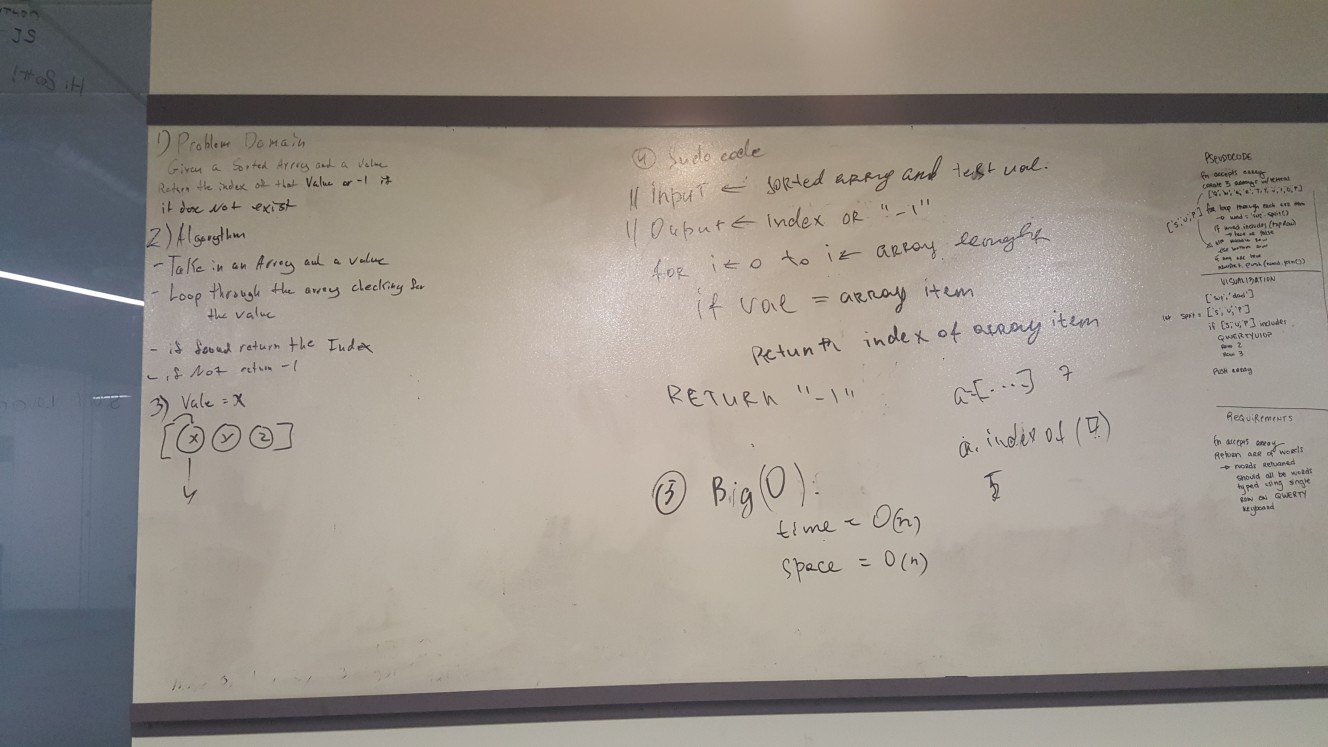 JS
1) Problem Domain
Given a Sorted Array and a Value
Return the index of that Value or -1 if
it doe Not exist
2) Algorythm
- Take in an Array and a value
- Loop through the array checking for
the value
- if found return the Index
- if Not return -1
3) Vale = X
[ X Y Z ]
4 Sudo code
// input ← sorted array and test val.
// Ouput ← index OR "-1"
for i ← 0 to i ← array length
if val = array item
Return index of array item
RETURN "-1"
a=[....] 7
a. index of (7)
5
5 Big(O):
time = O(n)
Space = O(n)
PSEUDOCODE
fn accepts array
create 3 arrays
['S','U','P'] for loop through each
VISUALISATION
let split = ['S','U','P']
if [S,U,P] includes
QWERTYUIOP
Row 2
Row 3
Push array
REQUIREMENTS
fn accepts array
Return arr of words
→ words returned
should all be words
typed using single
Row on QWERTY
keyboard